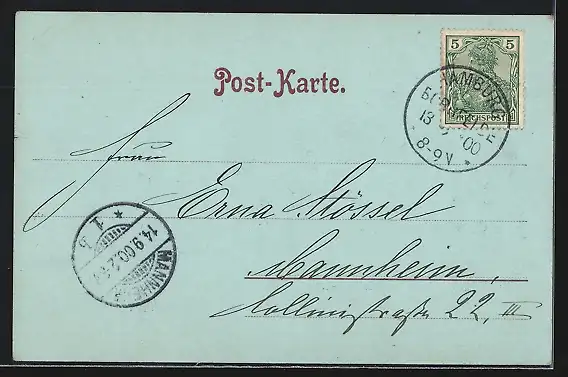 Post-Karte.
5 5
REICHSPOST
HAMBURG
BORGFELDE
13 9 00
8-9V *
Frau
Erna Stössel
Mannheim,
Collinistraße 22, III
* 1 b
14.9.00.2-
MANNHEIM